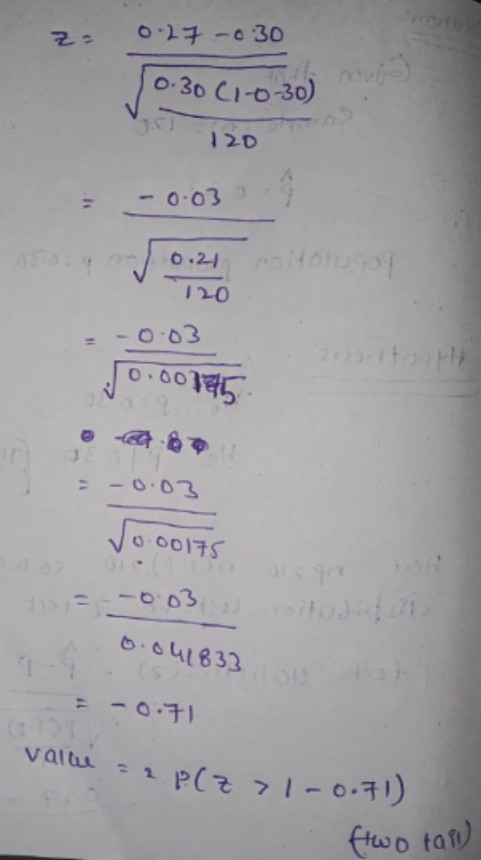 z = 0.27 - 0.30
√ 0.30 (1-0.30)
120
= - 0.03
√ 0.21
120
= - 0.03
√ 0.00175
= - 0.03
√ 0.00175
= - 0.03
0.041833
= - 0.71
value = 2 P(z > 1 - 0.71)
(two tail)